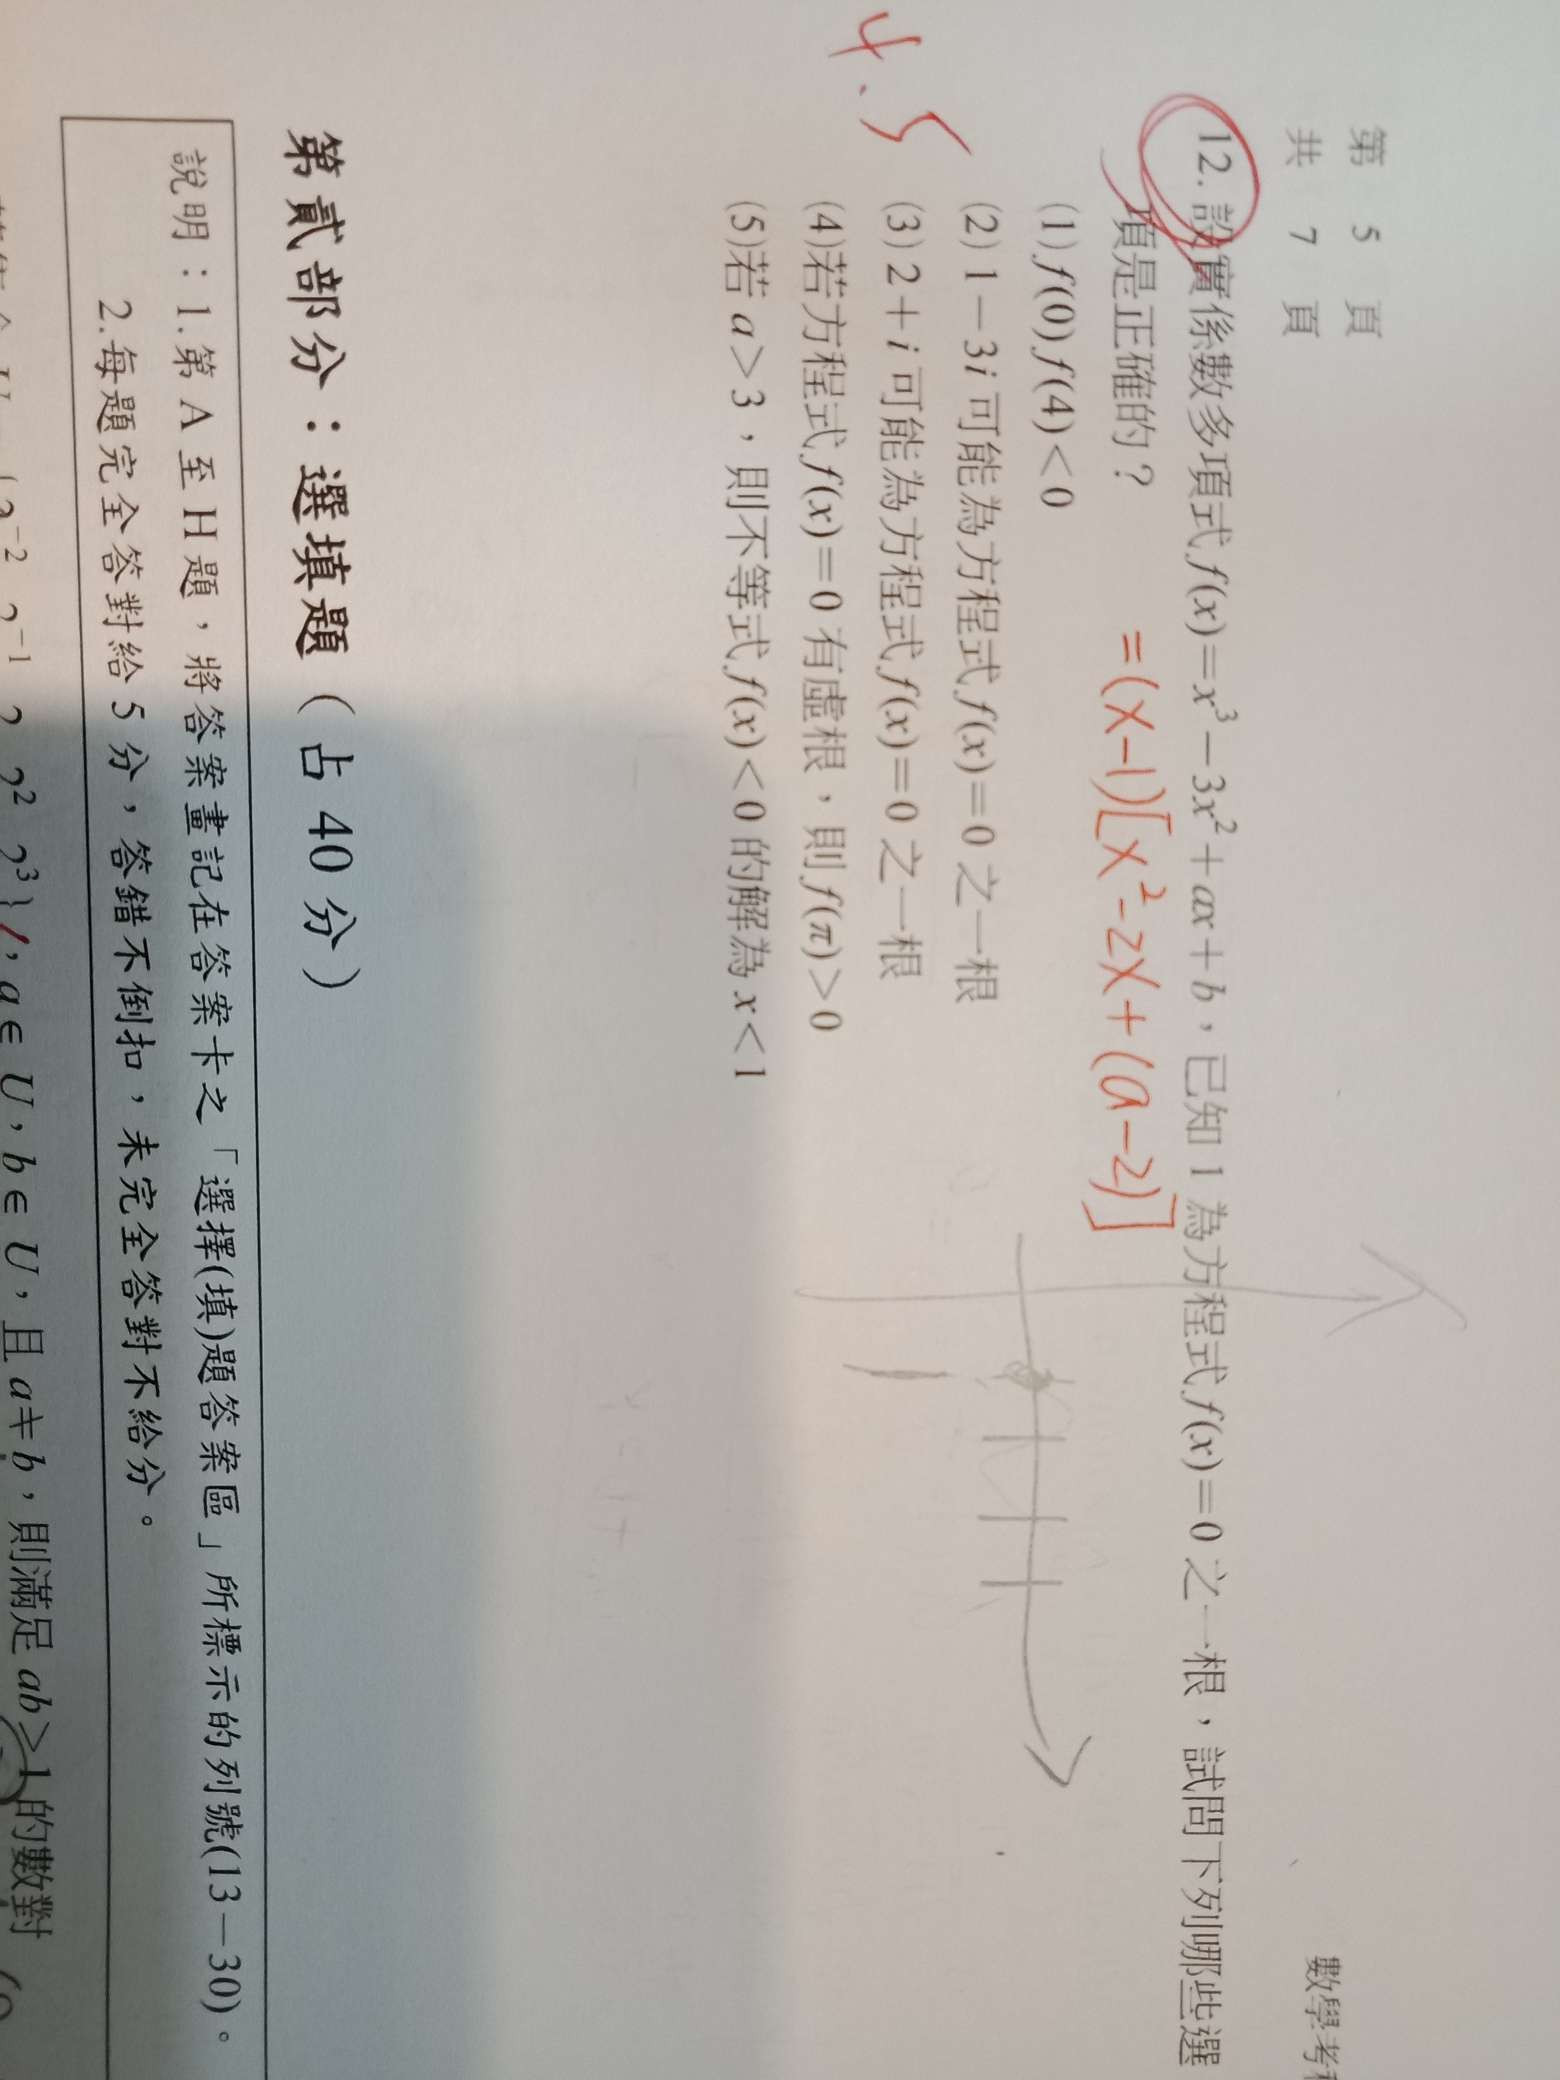 第 5 頁
共 7 頁
數學考科
12. 設實係數多項式 f(x)=x³-3x²+ax+b，已知 1 為方程式 f(x)=0 之一根，試問下列哪些選
項是正確的？
=(x-1)[x²-2x+(a-2)]
(1) f(0) f(4)<0
(2) 1-3i 可能為方程式 f(x)=0 之一根
(3) 2+i 可能為方程式 f(x)=0 之一根
(4) 若方程式 f(x)=0 有虛根，則 f(π)>0
(5) 若 a>3，則不等式 f(x)<0 的解為 x<1
4.5
1
第貳部分：選填題（占 40 分）
說明：1.第 A 至 H 題，將答案畫記在答案卡之「選擇(填)題答案區」所標示的列號(13-30)。
2.每題完全答對給 5 分，答錯不倒扣，未完全答對不給分。
2⁻² 2⁻¹ 2 2² 2³}，a∈U，b∈U，且 a≠b，則滿足 ab>1 的數對